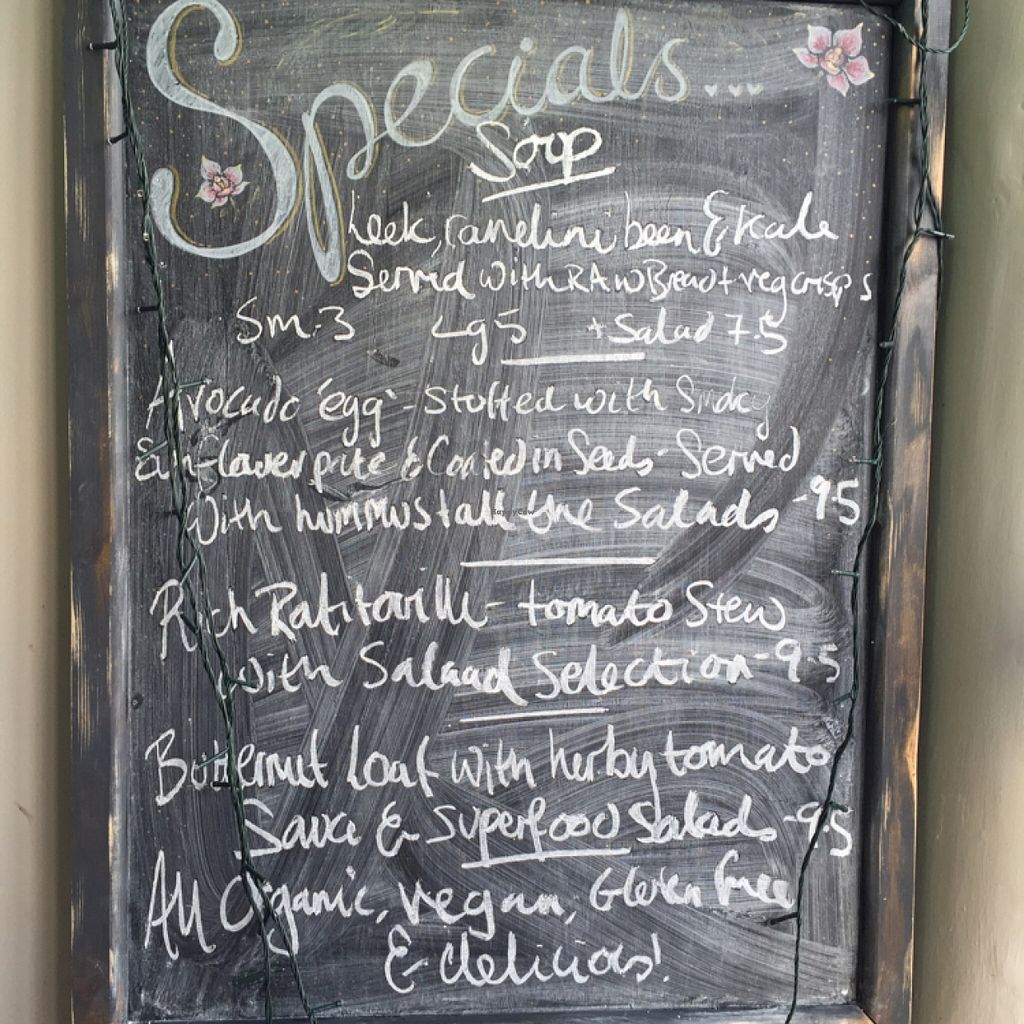 Specials...
Soup
Leek, Canelini been & Kale
Served with RAW Bread + veg crisps
Sm-3 Lg 5 + Salad 7.5
Avocado 'egg' - stuffed with Smoky
Sunflower pate & Coated in Seeds - Served
With hummus + all the Salads - 9.5
Rich Ratitouille - tomato Stew
with Salaad Selection - 9.5
Butternut loaf with herby tomato
Sauce & Superfood Salads - 9.5
All Organic, vegan, Gluten free
& delicious!
HappyCow